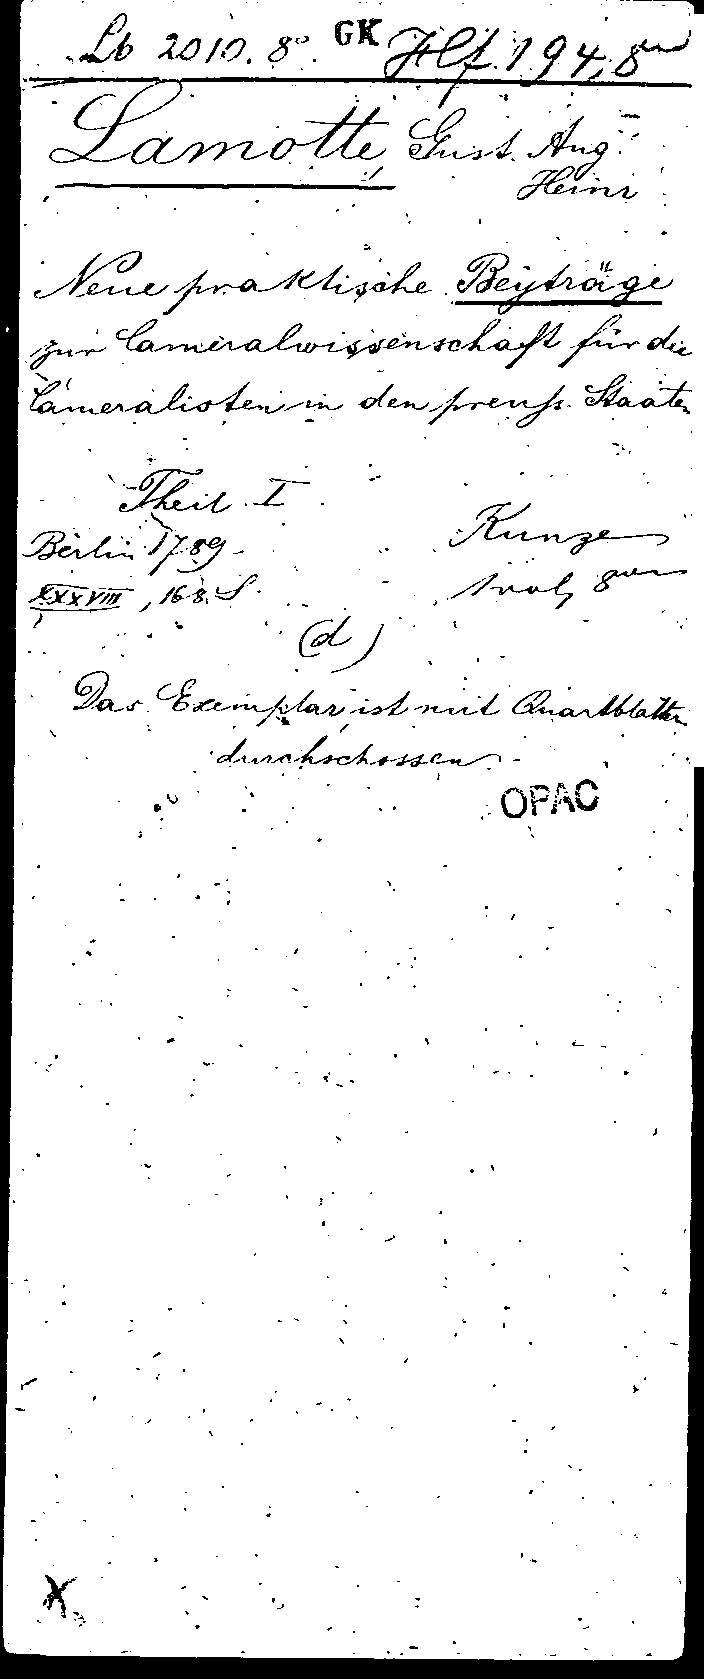 Lb 2010. 8° GK Hlf. 194, 8vo
Lamotte, Gust. Aug.
Heinr
Neue praktische Beyträge
zur Cameralwissenschaft für die
Cameralisten in den preuss. Staaten
Theil I
Berlin 1789. Kunze
XXXVIII, 168 S. 1 vol, 8vo
(d)
Das Exemplar ist mit Quartblättern
durchschossen.
OPAC
X